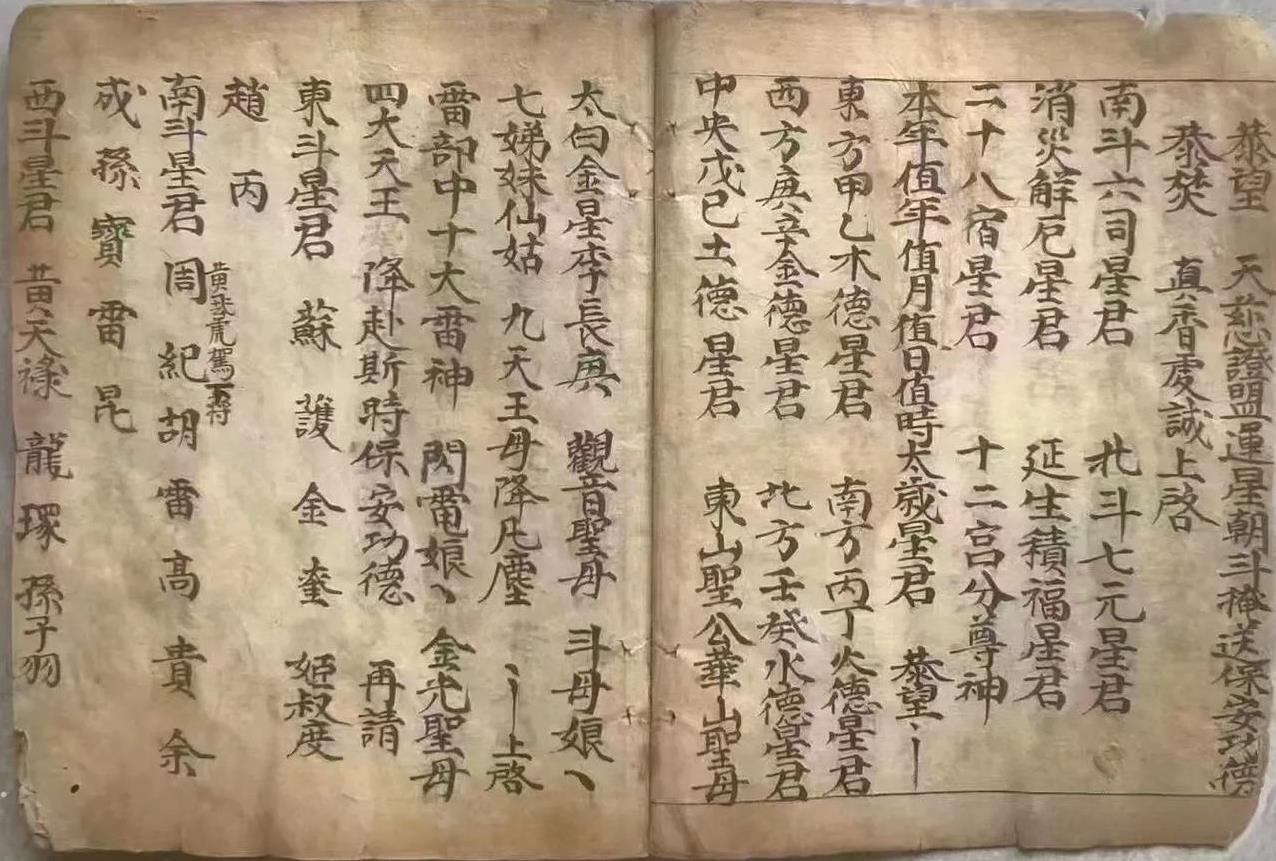 恭望　天慈證盟運星朝斗掩送保安功德
恭焚　真香虔誠上啓
南斗六司星君　北斗七元星君
消災解厄星君　延生積福星君
二十八宿星君　十二宮分尊神
本年值年值月值日值時太歲星君　恭望
東方甲乙木德星君　南方丙丁火德星君
西方庚辛金德星君　北方壬癸水德星君
中央戊己土德星君　東山聖公華山聖母
太白金星李長庚丶　觀音聖母　斗母娘丶
七娣妹仙姑　九天王母降凡塵　上啓
雷部中十大雷神　閃電娘丶　金光聖母
四大天王　降赴斯時保安功德　再請
東斗星君　蘇　護　金　奎　姬叔度
趙　丙
黃　虎駕
南斗星君　周　紀　胡　雷　高　貴　余
成　孫　寶　雷　昆
西斗星君　黃天祿　龍　環　孫子羽